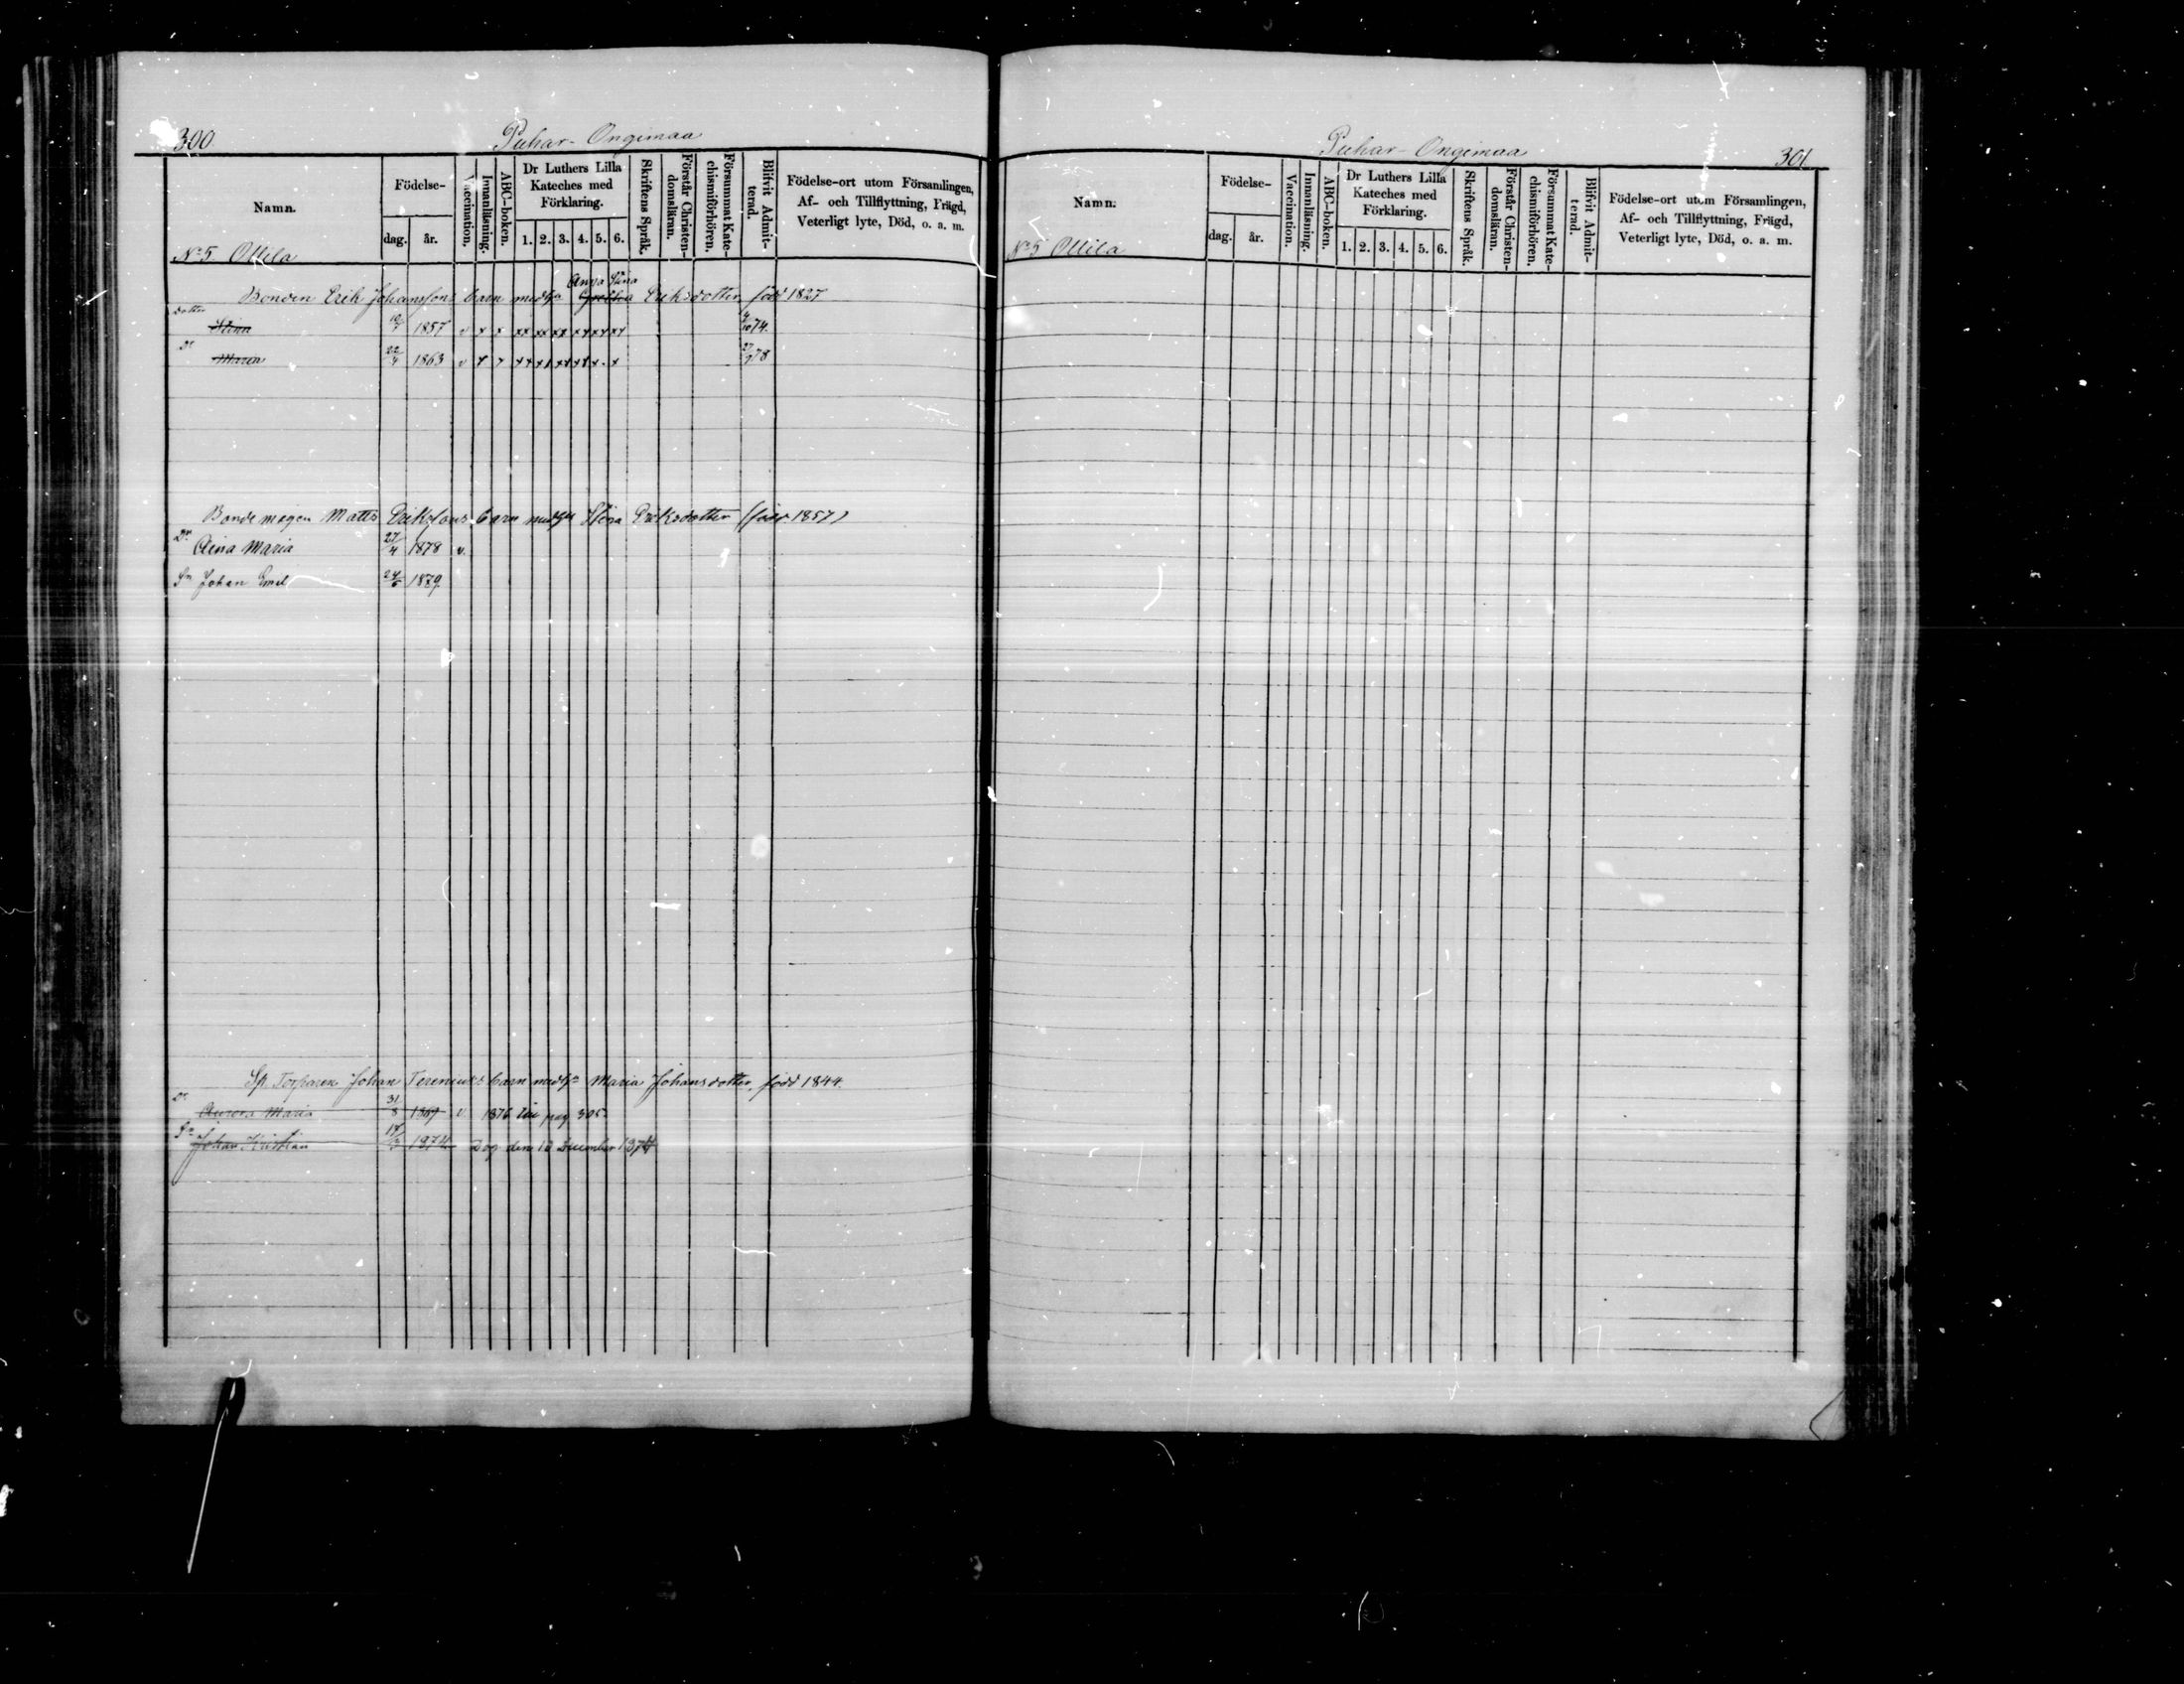 300
Puhar-Ongimaa
Namn.
Födelse-
dag.
år.
Vaccination.
Innanläsning.
ABC-boken.
Dr Luthers Lilla
Kateches med
Förklaring.
1. 2. 3. 4. 5. 6.
Skriftens Språk.
Förstår Christen-
domsläran.
Försummat Kate-
chismiförhören.
Blifvit Admit-
terad.
Födelse-ort utom Församlingen,
Af- och Tillflyttning, Frägd,
Veterligt lyte, Död, o. a. m.
No 5 Ollila
Anna Stina
Bonden Erik Johanssons barn med Eriksdotter född 1827
dotter
Stina 1857 v x x xx xx xx xx xx xx 74.
Dr
Maria 22/4 1863 v x x 27/7 78
Bonde mågen Matts Erikssons barn med Stina Eriksdotter (född 1857)
Dr Aina Maria 27/4 1878 v.
Sn Johan Emil 24/6 1879
Sp. Torparen Johan Terenius barn med Maria Johansdotter, född 1844.
Dr
Aurora Maria 31/8 1869 v 1876 till pag 305.
Sn
Johan Kristian 1874 Dog den 18 December 1874
Puhar-Ongimaa
301
Namn.
Födelse-
dag.
år.
Vaccination.
Innanläsning.
ABC-boken.
Dr Luthers Lilla
Kateches med
Förklaring.
1. 2. 3. 4. 5. 6.
Skriftens Språk.
Förstår Christen-
domsläran.
Försummat Kate-
chismiförhören.
Blifvit Admit-
terad.
Födelse-ort utom Församlingen,
Af- och Tillflyttning, Frägd,
Veterligt lyte, Död, o. a. m.
No 5 Ollila